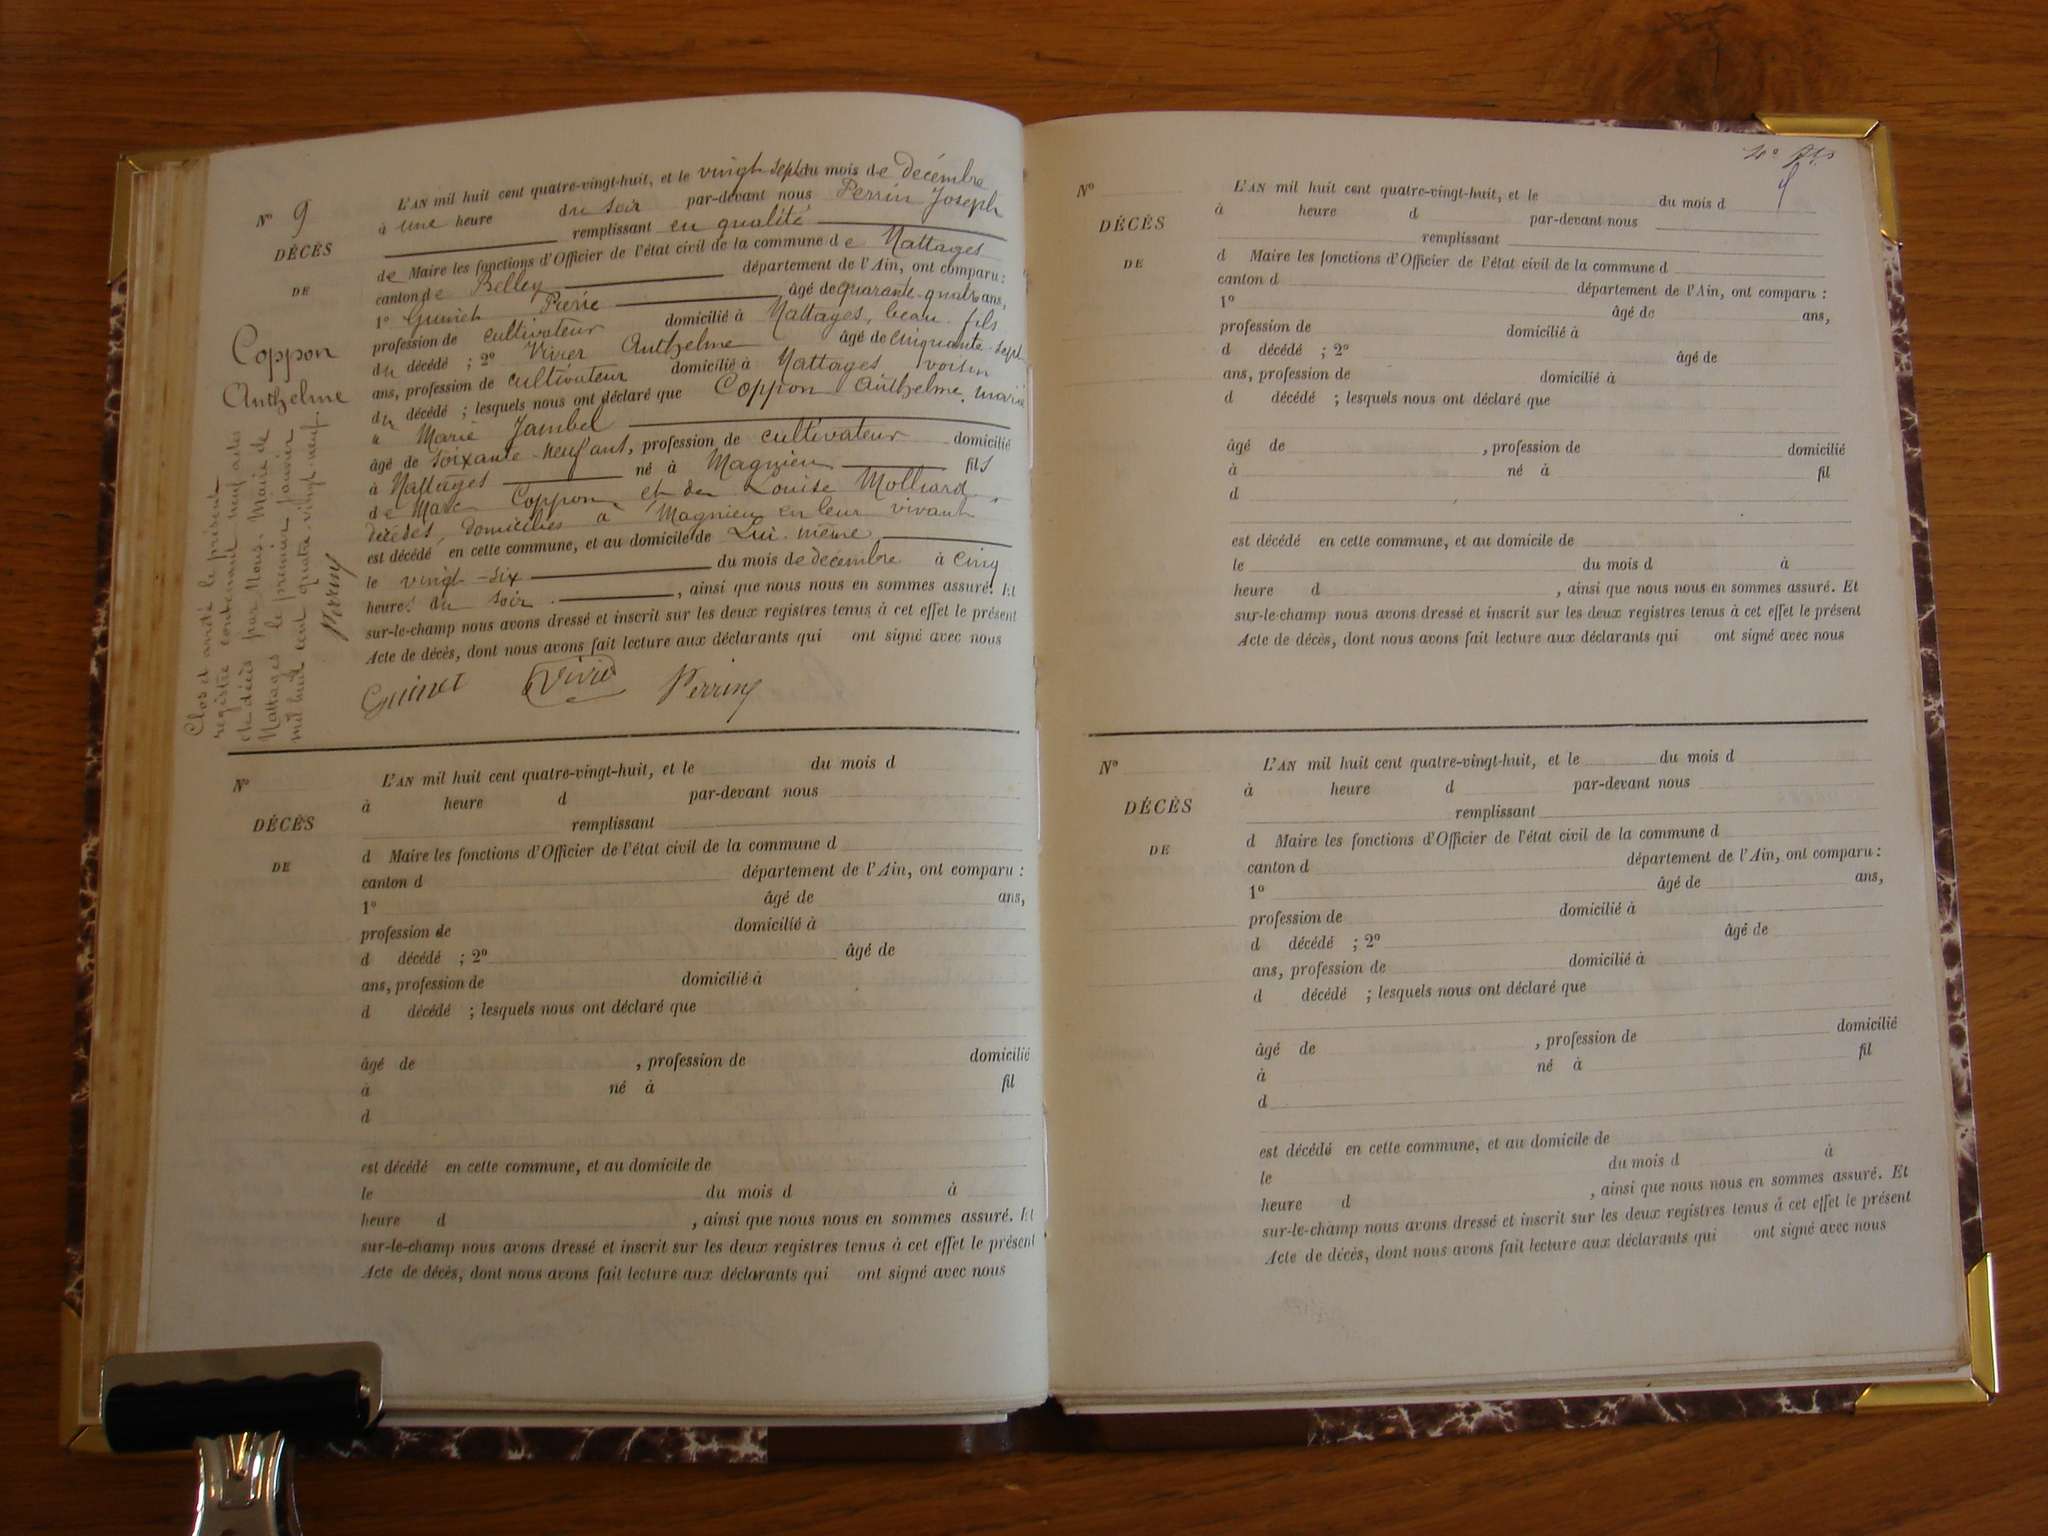 N° 9
DÉCÈS
DE
Coppon
Anthelme
L'AN mil huit cent quatre-vingt-huit, et le vingt-sept du mois de décembre
à une heure du soir par-devant nous Perrin Joseph
remplissant en qualité
de Maire les fonctions d'Officier de l'état civil de la commune de Nattages
canton de Belley département de l'Ain, ont comparu :
1° Guinet Pierre âgé de quarante-quatre ans,
profession de cultivateur domicilié à Nattages, beau-fils
du décédé ; 2° Vivier Anthelme âgé de cinquante-sept
ans, profession de cultivateur domicilié à Nattages voisin
du décédé ; lesquels nous ont déclaré que Coppon Anthelme, marié
à Marie Jambel
âgé de soixante-neuf ans, profession de cultivateur domicilié
à Nattages né à Magnieu fils
de Marc Coppon et de Louise Molliard
décédés, domiciliés à Magnieu en leur vivant
est décédé en cette commune, et au domicile de Lui-même
le vingt-six du mois de décembre à cinq
heures du soir , ainsi que nous nous en sommes assuré. Et
sur-le-champ nous avons dressé et inscrit sur les deux registres tenus à cet effet le présent
Acte de décès, dont nous avons fait lecture aux déclarants qui ont signé avec nous
Guinet Vivier Perrin
Clos et arrêté le présent
registre contenant neuf actes
de décès par Nous, Maire de
Nattages le premier janvier
mil huit cent quatre-vingt-neuf.
Perrin
N°
DÉCÈS
DE
L'AN mil huit cent quatre-vingt-huit, et le du mois d
à heure d par-devant nous
remplissant
d Maire les fonctions d'Officier de l'état civil de la commune d
canton d département de l'Ain, ont comparu :
1° âgé de ans,
profession de domicilié à
d décédé ; 2° âgé de
ans, profession de domicilié à
d décédé ; lesquels nous ont déclaré que
âgé de , profession de domicilié
à né à fil
d
est décédé en cette commune, et au domicile de
le du mois d à
heure d , ainsi que nous nous en sommes assuré. Et
sur-le-champ nous avons dressé et inscrit sur les deux registres tenus à cet effet le présent
Acte de décès, dont nous avons fait lecture aux déclarants qui ont signé avec nous
N°
DÉCÈS
DE
L'AN mil huit cent quatre-vingt-huit, et le du mois d
à heure d par-devant nous
remplissant
d Maire les fonctions d'Officier de l'état civil de la commune d
canton d département de l'Ain, ont comparu :
1° âgé de ans,
profession de domicilié à
d décédé ; 2° âgé de
ans, profession de domicilié à
d décédé ; lesquels nous ont déclaré que
âgé de , profession de domicilié
à né à fil
d
est décédé en cette commune, et au domicile de
le du mois d à
heure d , ainsi que nous nous en sommes assuré. Et
sur-le-champ nous avons dressé et inscrit sur les deux registres tenus à cet effet le présent
Acte de décès, dont nous avons fait lecture aux déclarants qui ont signé avec nous
N°
DÉCÈS
DE
L'AN mil huit cent quatre-vingt-huit, et le du mois d
à heure d par-devant nous
remplissant
d Maire les fonctions d'Officier de l'état civil de la commune d
canton d département de l'Ain, ont comparu :
1° âgé de ans,
profession de domicilié à
d décédé ; 2° âgé de
ans, profession de domicilié à
d décédé ; lesquels nous ont déclaré que
âgé de , profession de domicilié
à né à fil
d
est décédé en cette commune, et au domicile de
le du mois d à
heure d , ainsi que nous nous en sommes assuré. Et
sur-le-champ nous avons dressé et inscrit sur les deux registres tenus à cet effet le présent
Acte de décès, dont nous avons fait lecture aux déclarants qui ont signé avec nous